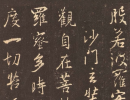 般若波羅
沙門玄奘
觀自在菩
羅蜜多時
度一切苦